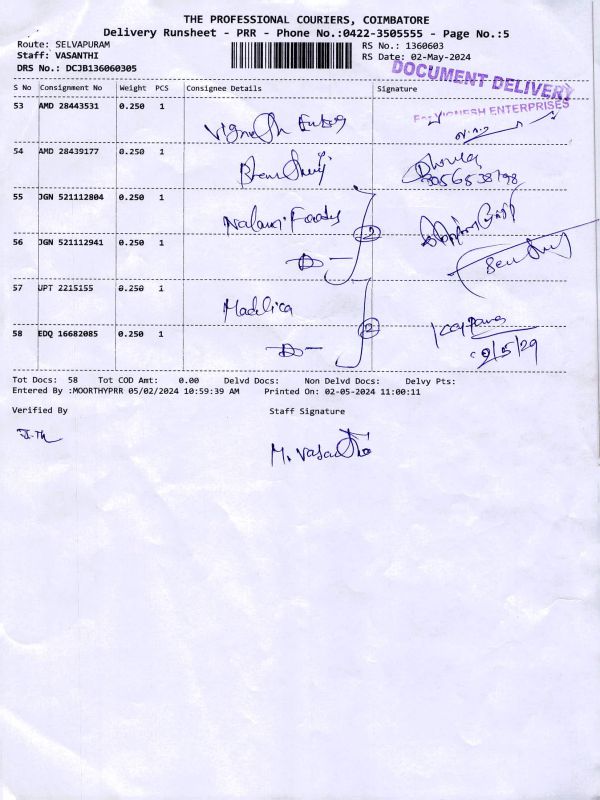 THE PROFESSIONAL COURIERS, COIMBATORE
Delivery Runsheet - PRR - Phone No.:0422-3505555 - Page No.:5
Route: SELVAPURAM RS No.: 1360603
Staff: VASANTHI RS Date: 02-May-2024
DRS No.: DCJB136060305
DOCUMENT DELIVERY
For VIGNESH ENTERPRISES
S No Consignment No Weight PCS Consignee Details Signature
53 AMD 28443531 0.250 1
54 AMD 28439177 0.250 1
8056538798
55 JGN 521112804 0.250 1 Nalam Foods
2
56 JGN 521112941 0.250 1
57 UPT 2215155 0.250 1
2
58 EDQ 16682085 0.250 1
Tot Docs: 58 Tot COD Amt: 0.00 Delvd Docs: Non Delvd Docs: Delvy Pts:
Entered By :MOORTHYPRR 05/02/2024 10:59:39 AM Printed On: 02-05-2024 11:00:11
Verified By Staff Signature